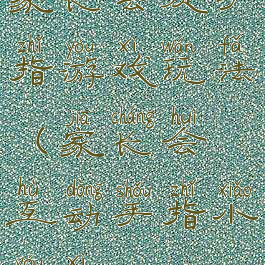 家长会及手
zhǐ yóu xì wán fǎ
指游戏玩法
jiā zhǎng huì
(家长会
hù dòng shǒu zhǐ xiǎo
互动手指小
yóu xì